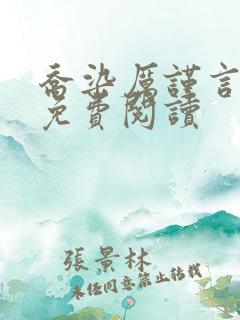 喬染厲謹言
免費閱讀
張景林
未經同意禁止轉載